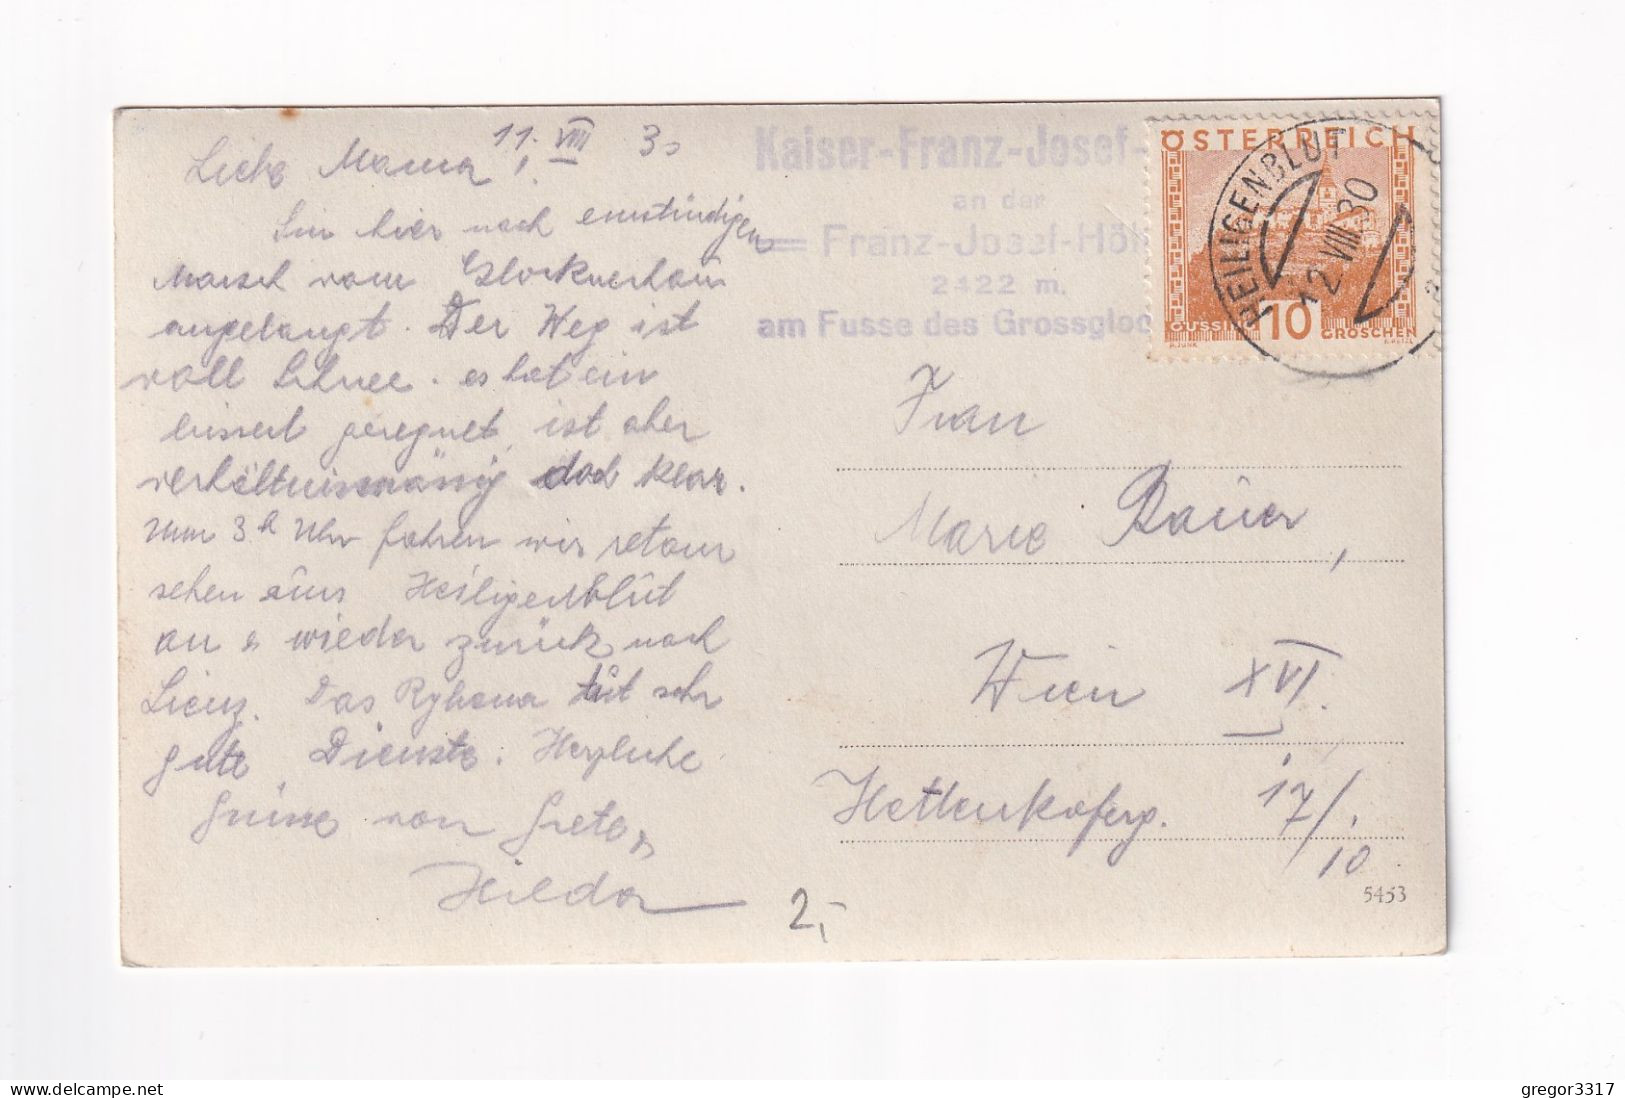 11. VIII 30
Liebe Mama,
Bin hier nach einstündigen
Marsch vom Glocknerhaus
angelangt. Der Weg ist
voll Schnee. es hat ein
bisserl geregnet, ist aber
verhältnismässig doch klar.
Um 3h Uhr fahren wir retour
sehen uns Heiligenblut
an & wieder zurück nach
Lienz. Das tut sehr
gute Dienste. Herzliche
Grüsse von Grete,
Hilda
2,-
Kaiser-Franz-Josef-
an der
Franz-Josef-Höh
2422 m.
am Fusse des Grossgloc
ÖSTERREICH
GÜSSING 10 GROSCHEN
HEILIGENBLUT
12 VIII 30
Frau
Marie Bauer,
Wien XVI.
Hettenkoferg. 17/
10
5453
gregor3317